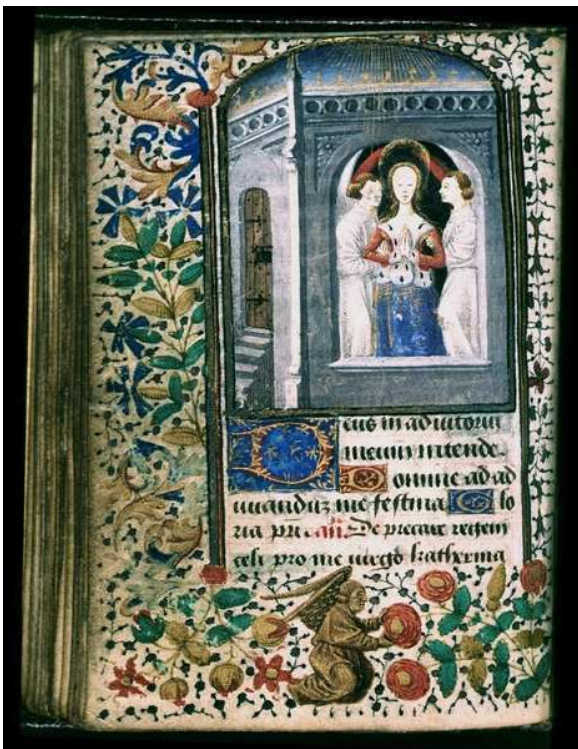 Deus in adiutoriu
meum intende.
Domine ad ad
iuuanduz me festina Glo
ria pri. añ. De precare regem
celi pro me uirgo katherina